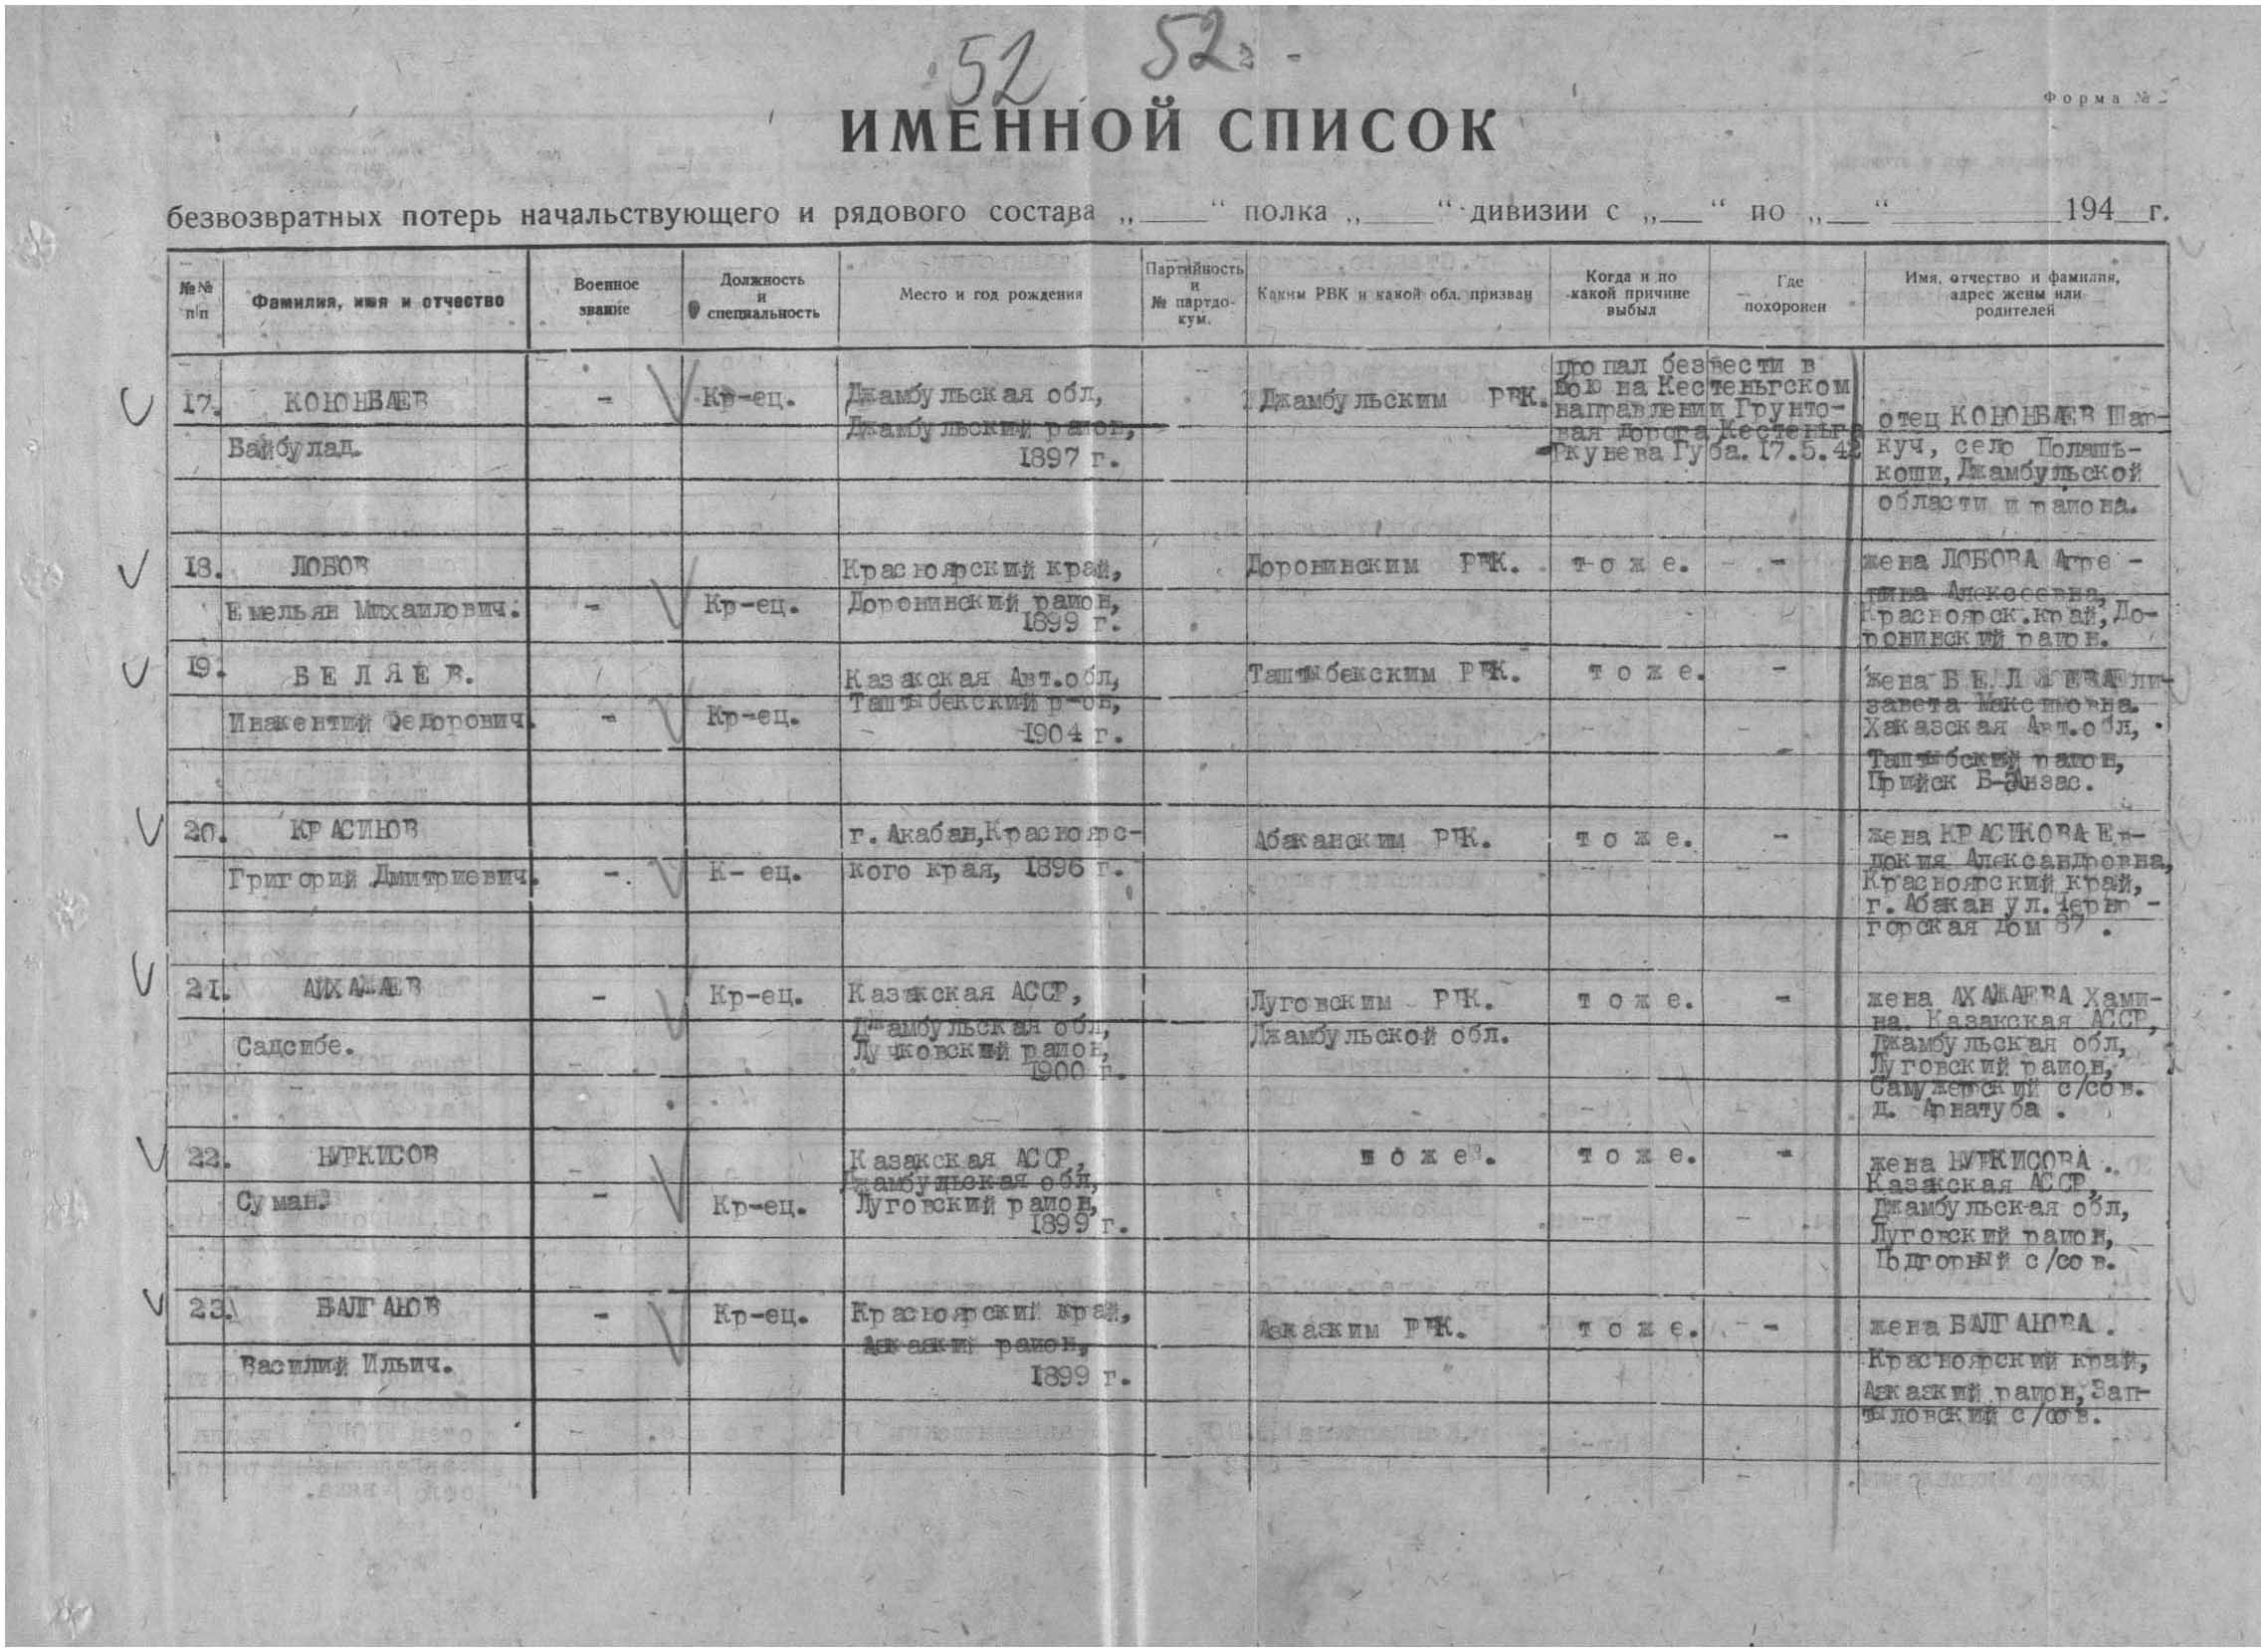 52 52
Форма №
ИМЕННОЙ СПИСОК
безвозвратных потерь начальствующего и рядового состава „ “ полка „ “ дивизии с „ “ по „ “ 194 г.
№№ п/п
Фамилия, имя и отчество
Военное звание
Должность и специальность
Место и год рождения
Партийность и № партдокум.
Каким РВК и какой обл. призван
Когда и по какой причине выбыл
Где похоронен
Имя, отчество и фамилия, адрес жены или родителей
17. КОЮНБАЕВ
Байбулад.
-
Кр-ец.
Джамбульская обл,
Джамбульский район,
1897 г.
Джамбульским РВК.
пропал без вести в
бою на Кестеньгском
направлении Грунто-
вая дорога Кестеньга
Окунева Губа. 17.5.42
отец КОЮНБАЕВ Шар-
куч, село
коши, Джамбульской
области и района.
18. ЛОБОВ
Емельян Михаилович.
-
Кр-ец.
Красноярский край,
Доронинский раион,
1899 г.
Доронинским РВК.
тоже.
-
жена ЛОБОВА Агре -
пина Алексеевна,
Красноярск.край, До-
ронинский раион.
19. БЕЛЯЕВ.
Инакентий Федорович.
-
Кр-ец.
Казакская Авт.обл,
Таштыбекский р-он,
1904 г.
Таштыбекским РВК.
тоже.
-
жена БЕЛЯЕВА Ели-
завета Максимовна.
Хакаэская Авт.обл,
Таштыбский раион,
Прийск Б-Анзас.
20. КРАСИКОВ
Григорий Дмитриевич.
-.
К- ец.
г. Акабан, Красноярс-
кого края, 1896 г.
Абаканским РВК.
тоже.
-
жена КРАСИКОВА Ев-
докия Александровна,
Красноярский край,
г. Абакан ул. Черно -
горская дом 87 .
21. АИХАЖАЕВ
Садсибе.
-
Кр-ец.
Казакская АССР,
Джамбульская обл,
Лучковский раион,
1900 г.
Луговским РВК.
Джамбульской обл.
тоже.
-
жена АХАЖАЕВА Хами-
на. Казакская АССР,
Джамбульская обл,
Луговский раион,
Самужерский с/сов.
д. Арнатуба .
22. НУРКИСОВ
Суман.
-
Кр-ец.
Казакская АССР,
Джамбульская обл,
Луговский раион,
1899 г.
тоже.
тоже.
-
жена НУРКИСОВА .
Казакская АССР,
Джамбульская обл,
Луговский раион,
Подгорный с/сов.
23. БАЛГАНОВ
Василий Ильич.
-
Кр-ец.
Красноярский край,
Аскаский раион,
1899 г.
Азказким РВК.
тоже.
-
жена БАЛГАНОВА .
Красноярский край,
Азказкий раион, Зап-
тыловский с/сов.